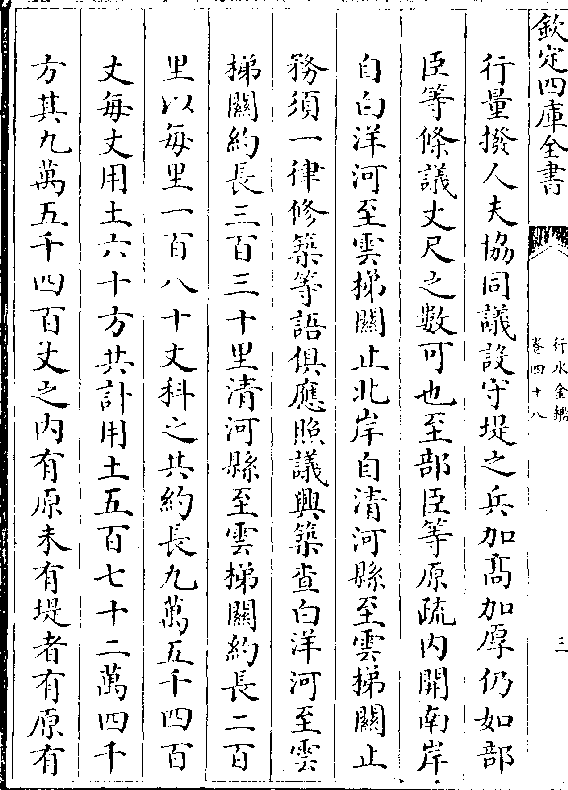 欽定四庫全書
行水金鑑
卷四十八
三
行量撥人夫協同議設守堤之兵加髙加厚仍如部
臣等條議丈尺之數可也至部臣等原疏内開南岸
自白洋河至雲梯關止北岸自清河縣至雲梯關止
務須一律修築等語俱應照議興築查白洋河至雲
梯關約長三百三十里清河縣至雲梯關約長二百
里以每里一百八十丈科之共約長九萬五千四百
丈每丈用土六十方共計用土五百七十二萬四千
方其九萬五千四百丈之内有原未有堤者有原有